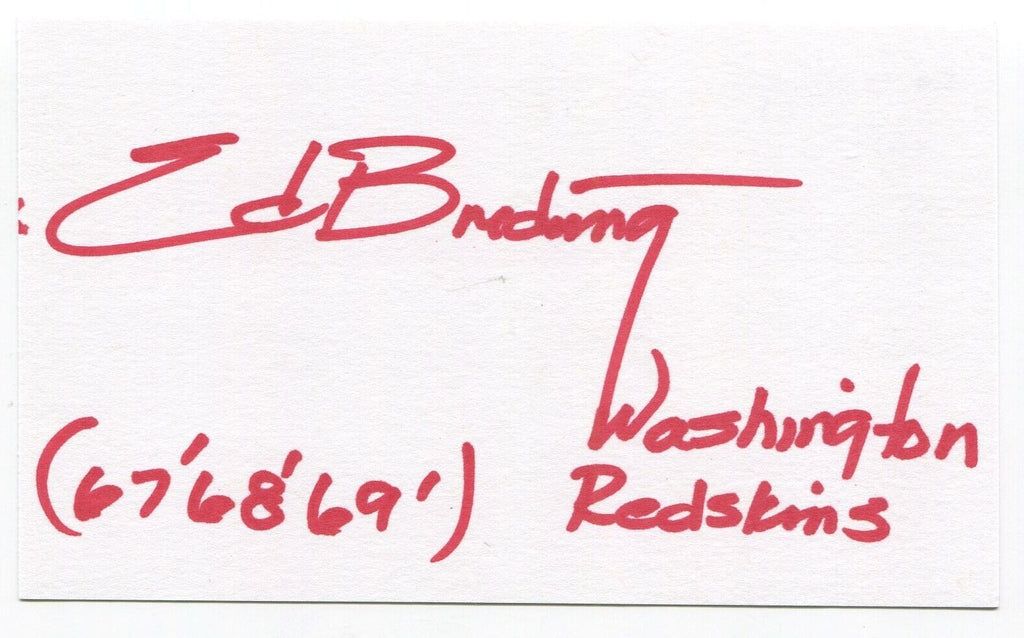 Ed Breding
Washington
(67'68'69') Redskins